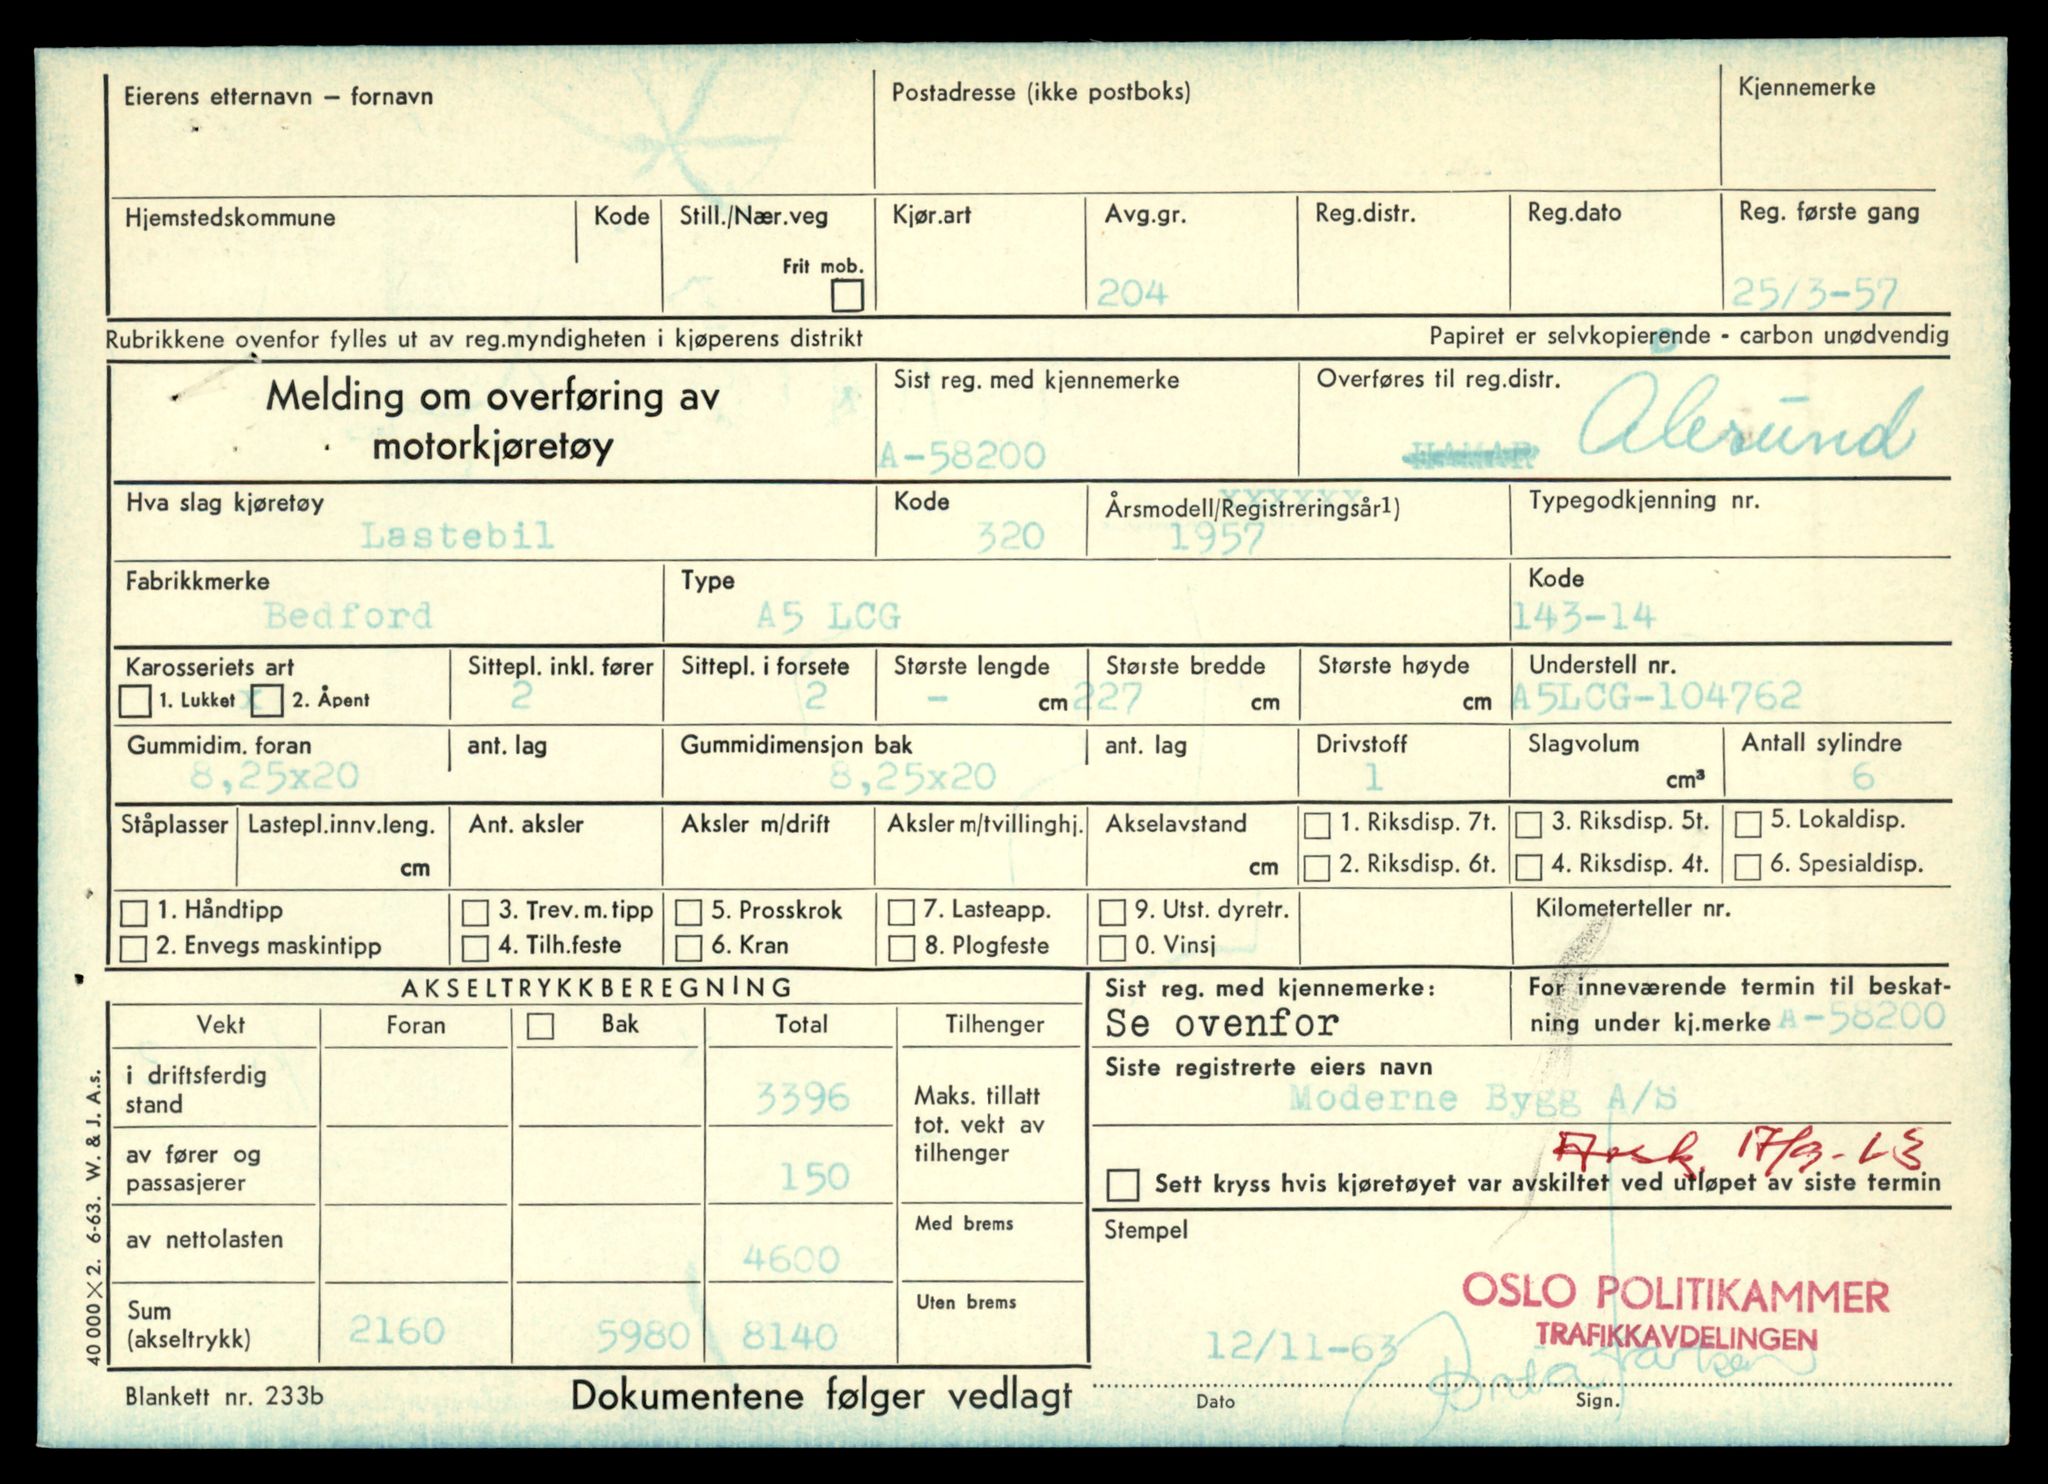 Eierens etternavn – fornavn Postadresse (ikke postboks) Kjennemerke
Hjemstedskommune Kode Still./Nær.veg Kjør.art Avg.gr. Reg.distr. Reg.dato Reg. første gang
Frit mob.
204 25/3-57
Rubrikkene ovenfor fylles ut av reg.myndigheten i kjøperens distrikt Papiret er selvkopierende - carbon unødvendig
Melding om overføring av
motorkjøretøy
Sist reg. med kjennemerke Overføres til reg.distr.
A-58200 HAMAR Ålesund
Hva slag kjøretøy Kode Årsmodell/Registreringsår1) Typegodkjenning nr.
xxxxxx
Lastebil 320 1957
Fabrikkmerke Type Kode
Bedford A5 LCG 143-14
Karosseriets art Sittepl. inkl. fører Sittepl. i forsete Største lengde Største bredde Største høyde Understell nr.
1. Lukket x 2. Åpent 2 2 - cm 227 cm cm A5LCG-104762
Gummidim. foran ant. lag Gummidimensjon bak ant. lag Drivstoff Slagvolum Antall sylindre
8,25x20 8,25x20 1 cm³ 6
Ståplasser Lastepl.innv.leng. Ant. aksler Aksler m/drift Aksler m/tvillinghj. Akselavstand 1. Riksdisp. 7t. 3. Riksdisp. 5t. 5. Lokaldisp.
cm cm 2. Riksdisp. 6t. 4. Riksdisp. 4t. 6. Spesialdisp.
1. Håndtipp 3. Trev. m. tipp 5. Prosskrok 7. Lasteapp. 9. Utst. dyretr. Kilometerteller nr.
2. Envegs maskintipp 4. Tilh.feste 6. Kran 8. Plogfeste 0. Vinsj
AKSELTRYKKBEREGNING
Vekt Foran Bak Total Tilhenger
i driftsferdig
stand 3396
Maks. tillatt
tot. vekt av
tilhenger
av fører og
passasjerer 150
av nettolasten 4600
Med brems
Sum
(akseltrykk) 2160 5980 8140
Uten brems
Sist reg. med kjennemerke:
Se ovenfor
For inneværende termin til beskat-
ning under kj.merke A-58200
Siste registrerte eiers navn
Moderne Bygg A/S
17/9-63
Sett kryss hvis kjøretøyet var avskiltet ved utløpet av siste termin
Stempel
OSLO POLITIKAMMER
TRAFIKKAVDELINGEN
12/11-63
Dato Sign.
Blankett nr. 233b Dokumentene følger vedlagt
40 000 × 2. 6-63. W. & J. A.s.